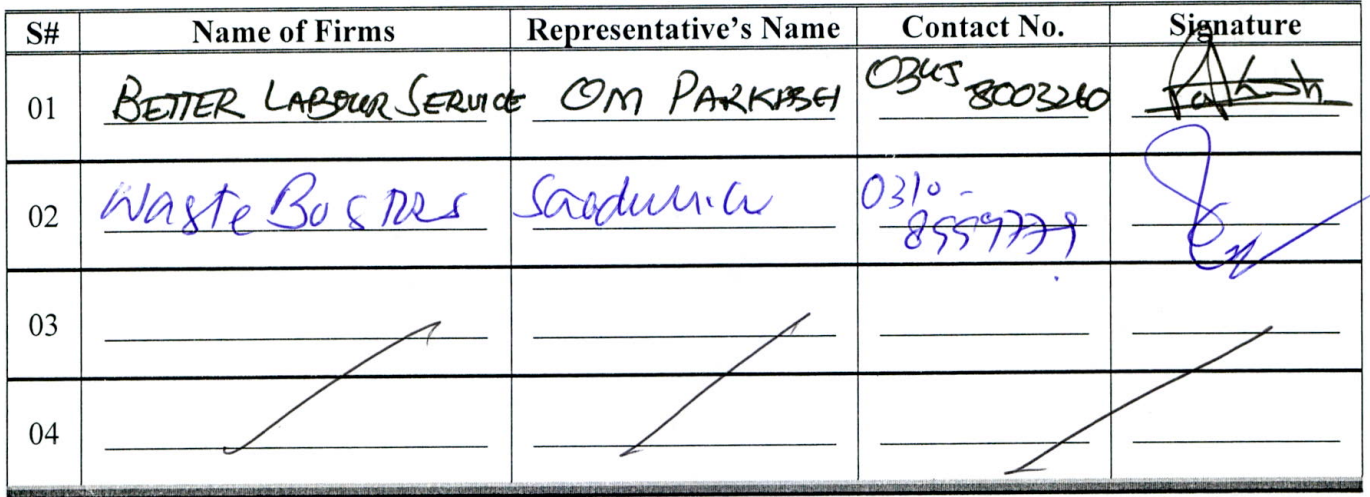 S# Name of Firms Representative's Name Contact No. Signature
01 BETTER LABOUR SERVICE OM PARKASH 0345
8003260
02 Waste Bosters 0310-
03
04